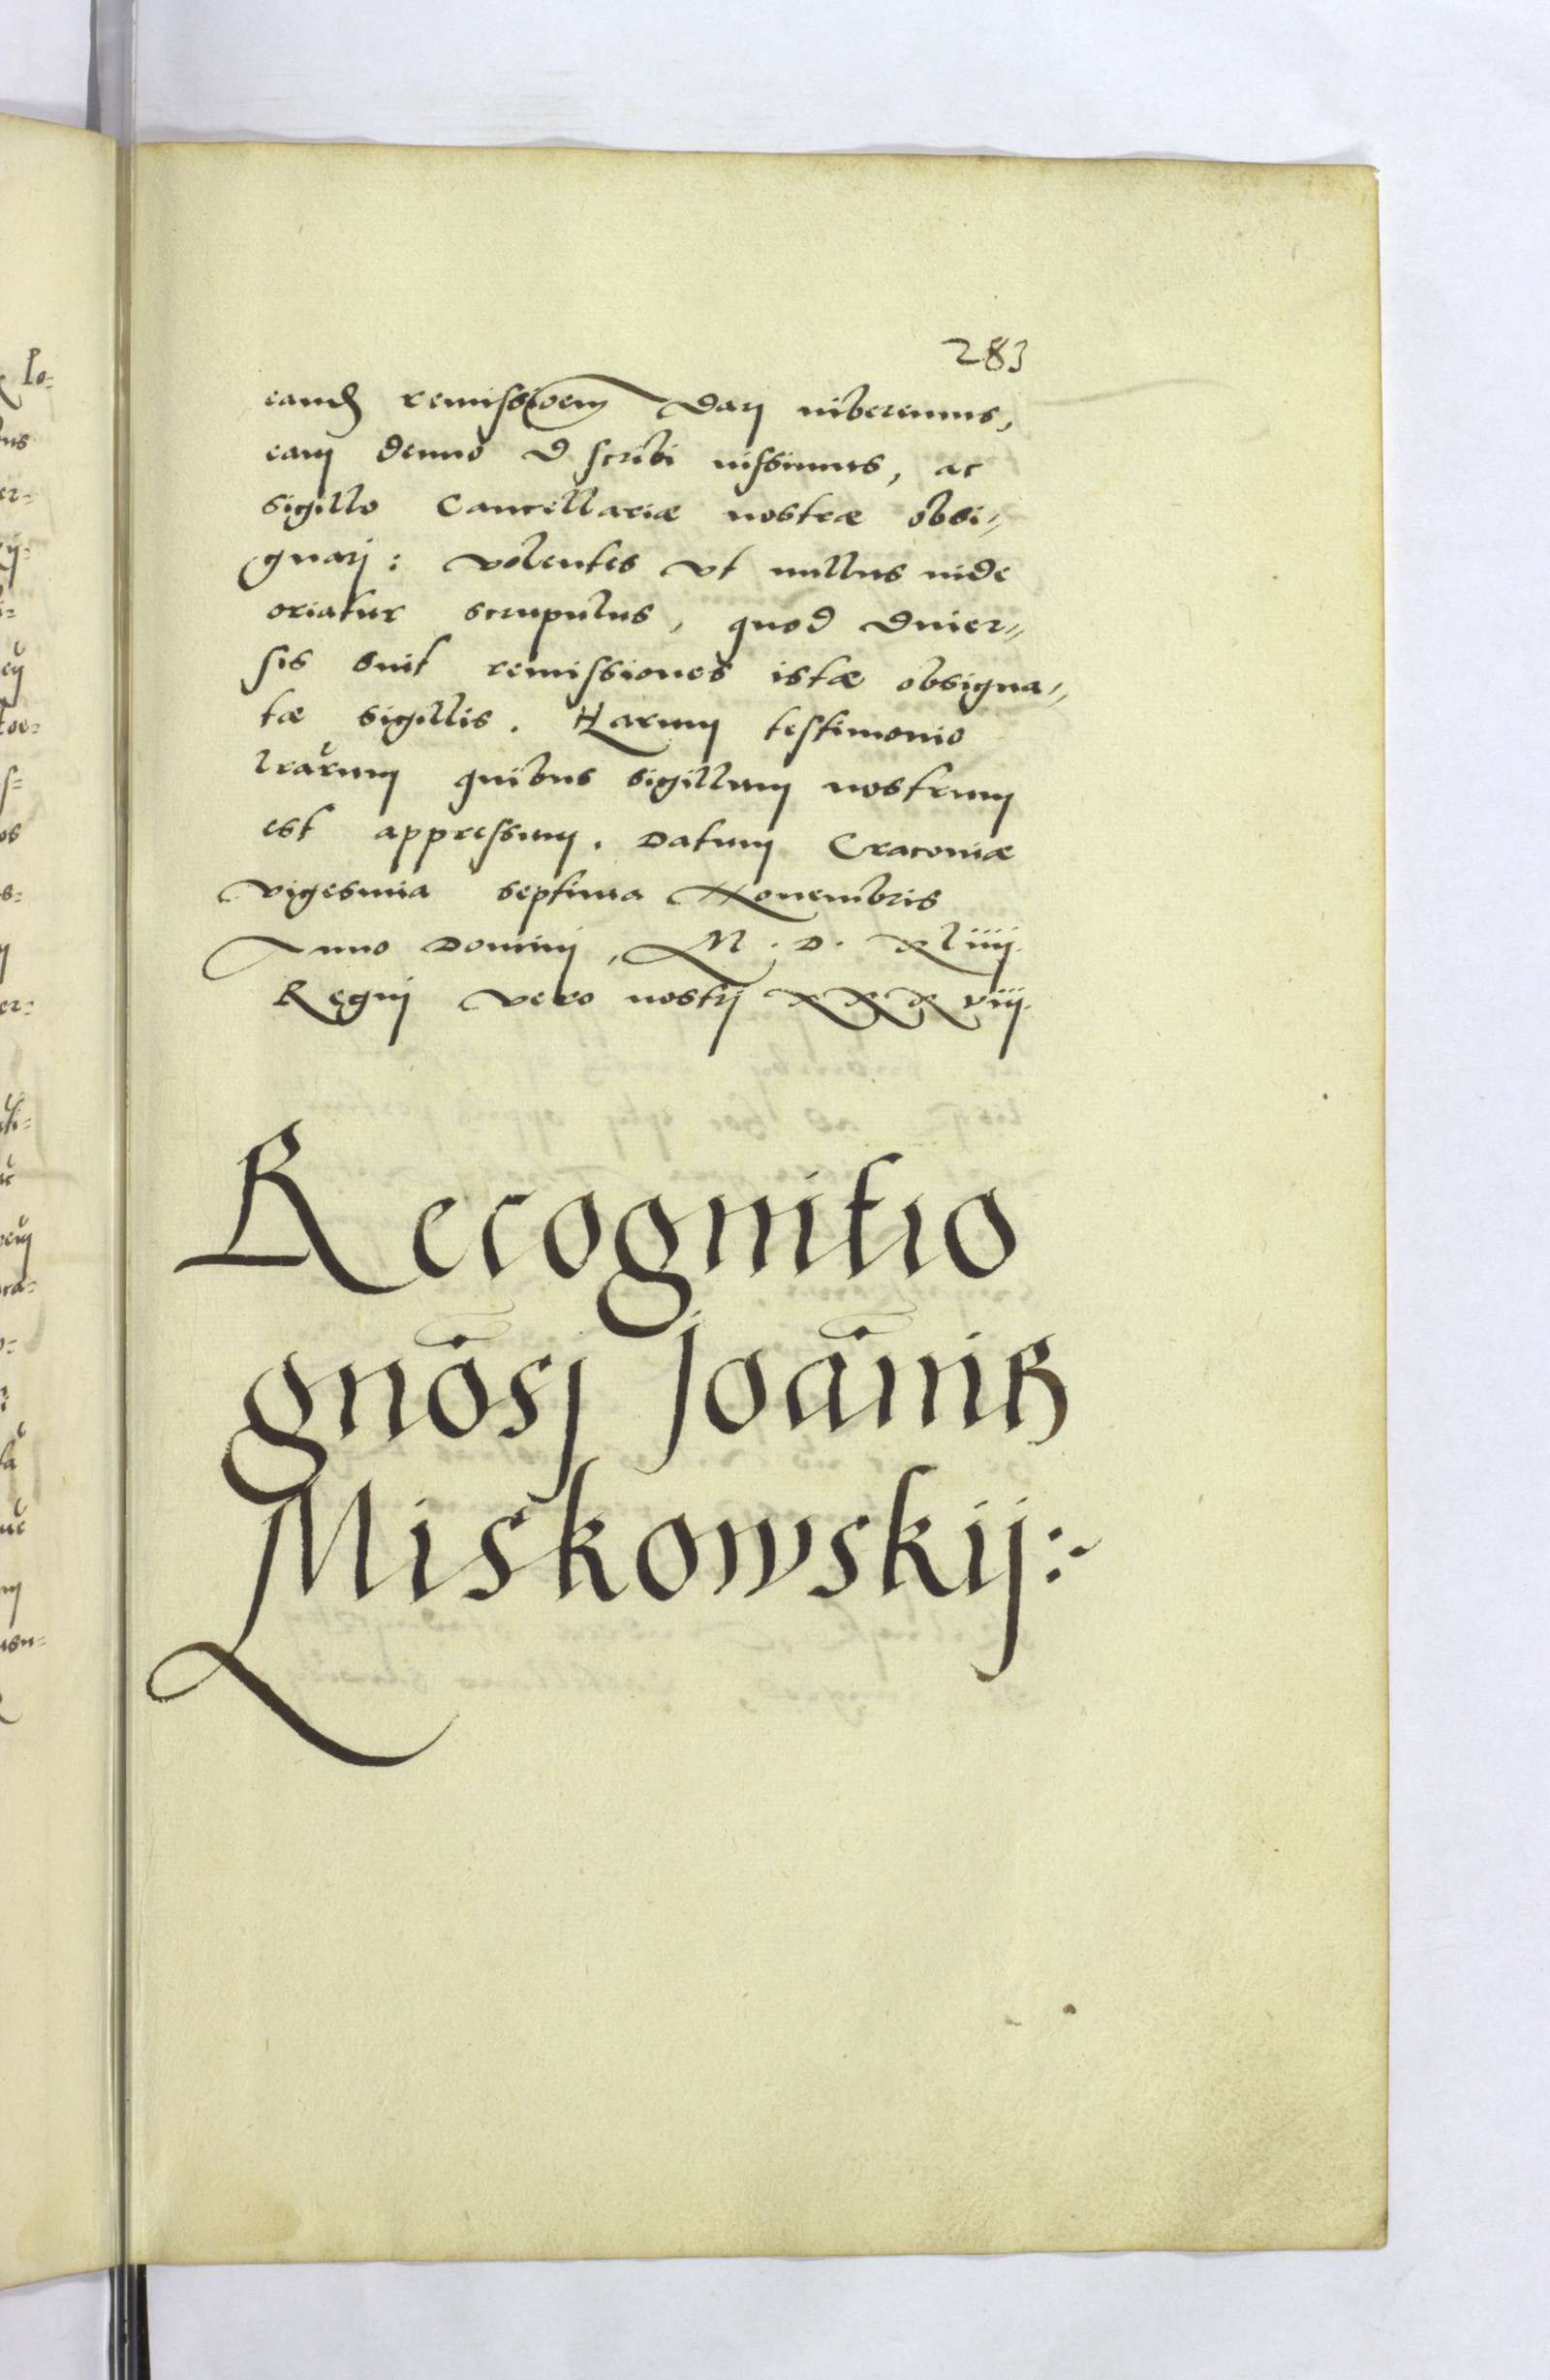 283
eand remissioem dari iuberemus,
eam denuo d scribi iussimus, ac
sigillo Cancellariæ nostræ obsi⸗
gnarj: volentes vt nullus inde
oriatur scrupulus, quod diuer⸗
sis sint remissiones istæ obsigna⸗
tæ sigillis. Harum testimonio
lrarum quibus sigillum nostrum
est appressum. Datum Cracouiæ
vigesima septima Nouembris
Anno Domini, M. D. xliiij.
Regnj vero nostrj xxxviij.
Recognitio
gnōsj Joānnis
Miskowskij:~